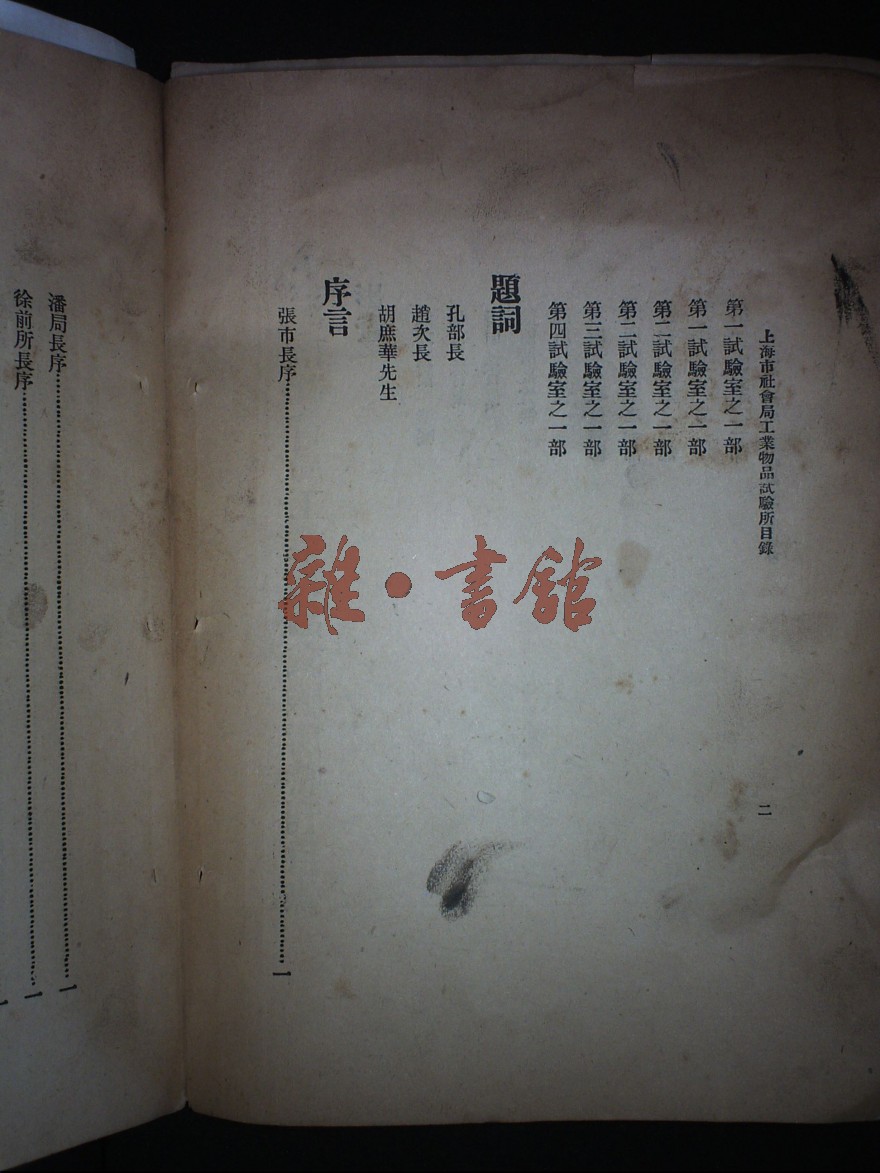 上海市社會局工業物品試驗所目錄
二
第一試驗室之一部
第一試驗室之一部
第二試驗室之一部
第二試驗室之一部
第三試驗室之一部
第四試驗室之一部
題詞
孔部長
趙次長
胡庶華先生
序言
張市長序…………一
潘局長序…………一
徐前所長序…………一
一
雜·書館